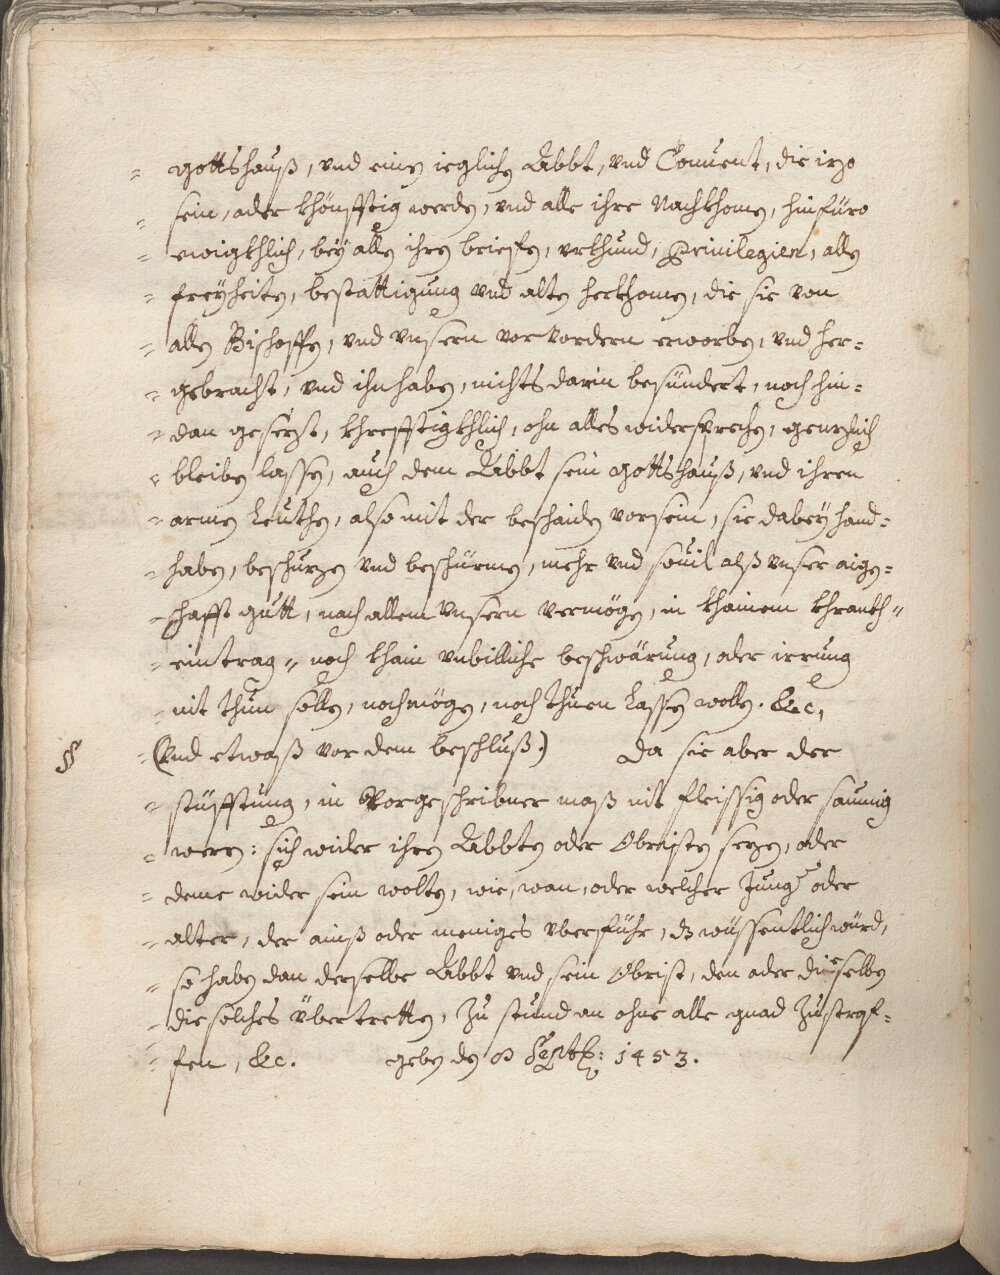 = gottshauß, vnd einen ieglichen Abbt, vnd Conuent, die izo
= sein, oder khönfftig werden, vnd alle ihre Nachkhomen, hinfüro
= ewigkhlich, bey allen ihren brieffen, vrkhund, Priuilegien, allen
= freyheiten, bestättigung vnd alten herkhomen, die sie von
= allen Bischoffen, vnd vnsern vorvordern erworben, vnd her=
= gebracht, vnd ihnhaben, nichts darin besündert, noch hin=
= dan gesezt, khrefftigkhlich, ohn alles widersprechen, genzlich
= bleiben lassen, auch dem Abbt sein gottshauß, vnd ihren
= armen Leuthen, also mit der beschaiden vorsein, sie dabey hand=
= haben, beschuzen vnd beschürmen, mehr vnd souil alß vnser aigen=
= hafft gutt, nach allem vnsern vermögen, in khainem khranckh=
= eintrag= noch khain vnbilliche beschwärung, oder irrung
= nit thun sollen, noch mögen, noch thuen lassen wollen. &c,
§ = (Vnd etwaß vor dem beschluß.) Da sie aber der
= stüfftung, in Vorgeschribner maß nit fleissig oder saumig
= weren: sich wider ihren Abbten oder Obristen sezen, oder
= deme wider sein wolten, wie, wan, oder welcher Jung oder
= alter, der ainß oder meniges vberführ, dz wüssentlich würd,
= so haben dan derselbe Abbt vnd sein Obrist, den oder dieselben
= die solches übertretten, zu stund an ohne alle gnad zustraf=
= fen, &c. geben den Septb: 1453.